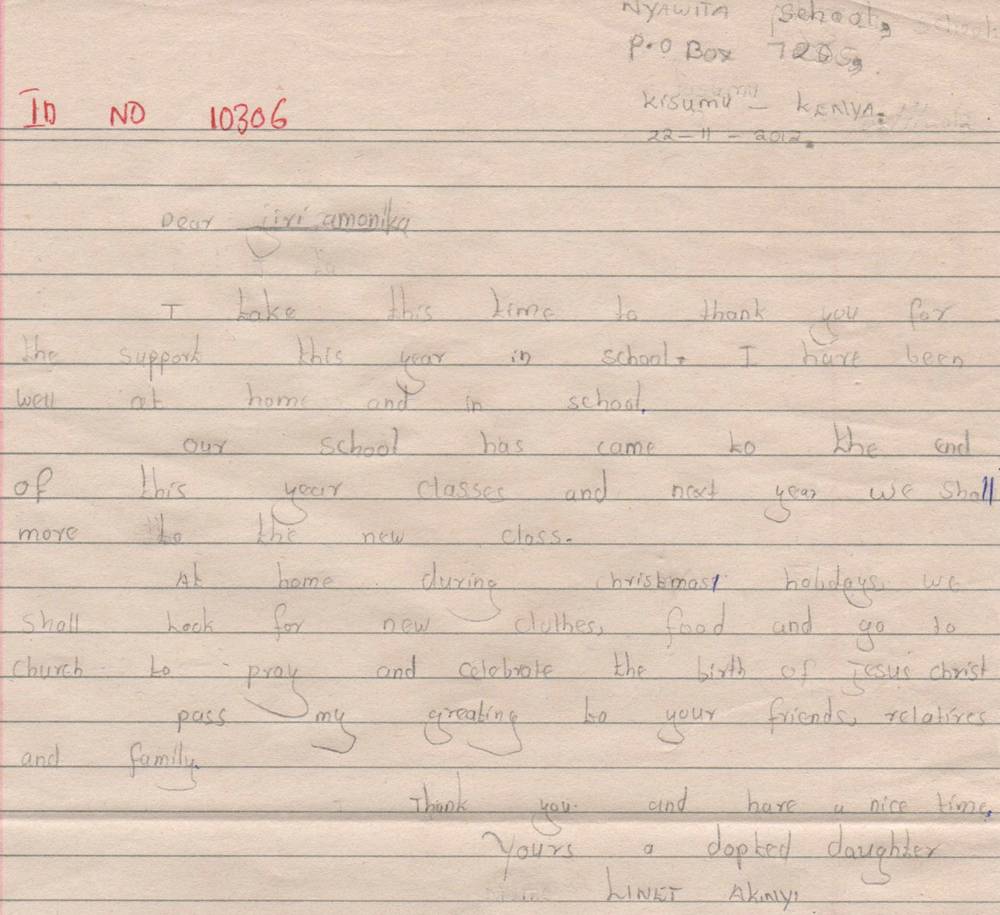 NYAWITA School,
P.O Box 7205,
ID NO 10306
KISUMU - KENYA.
22-11-2012.
Dear jiri amonika
I take this time to thank you for
the support this year in school. I have been
well at home and in school.
Our school has came to the end
of this year classes and next year we shall
more to the new class.
At home during christmas holidays, we
shall look for new clothes, food and go to
church to pray and celebrate the birth of Jesus christ
pass my greating to your friends, relatives
and family.
Thank you and have a nice time.
Yours a dopted daughter
LINET AKINYI